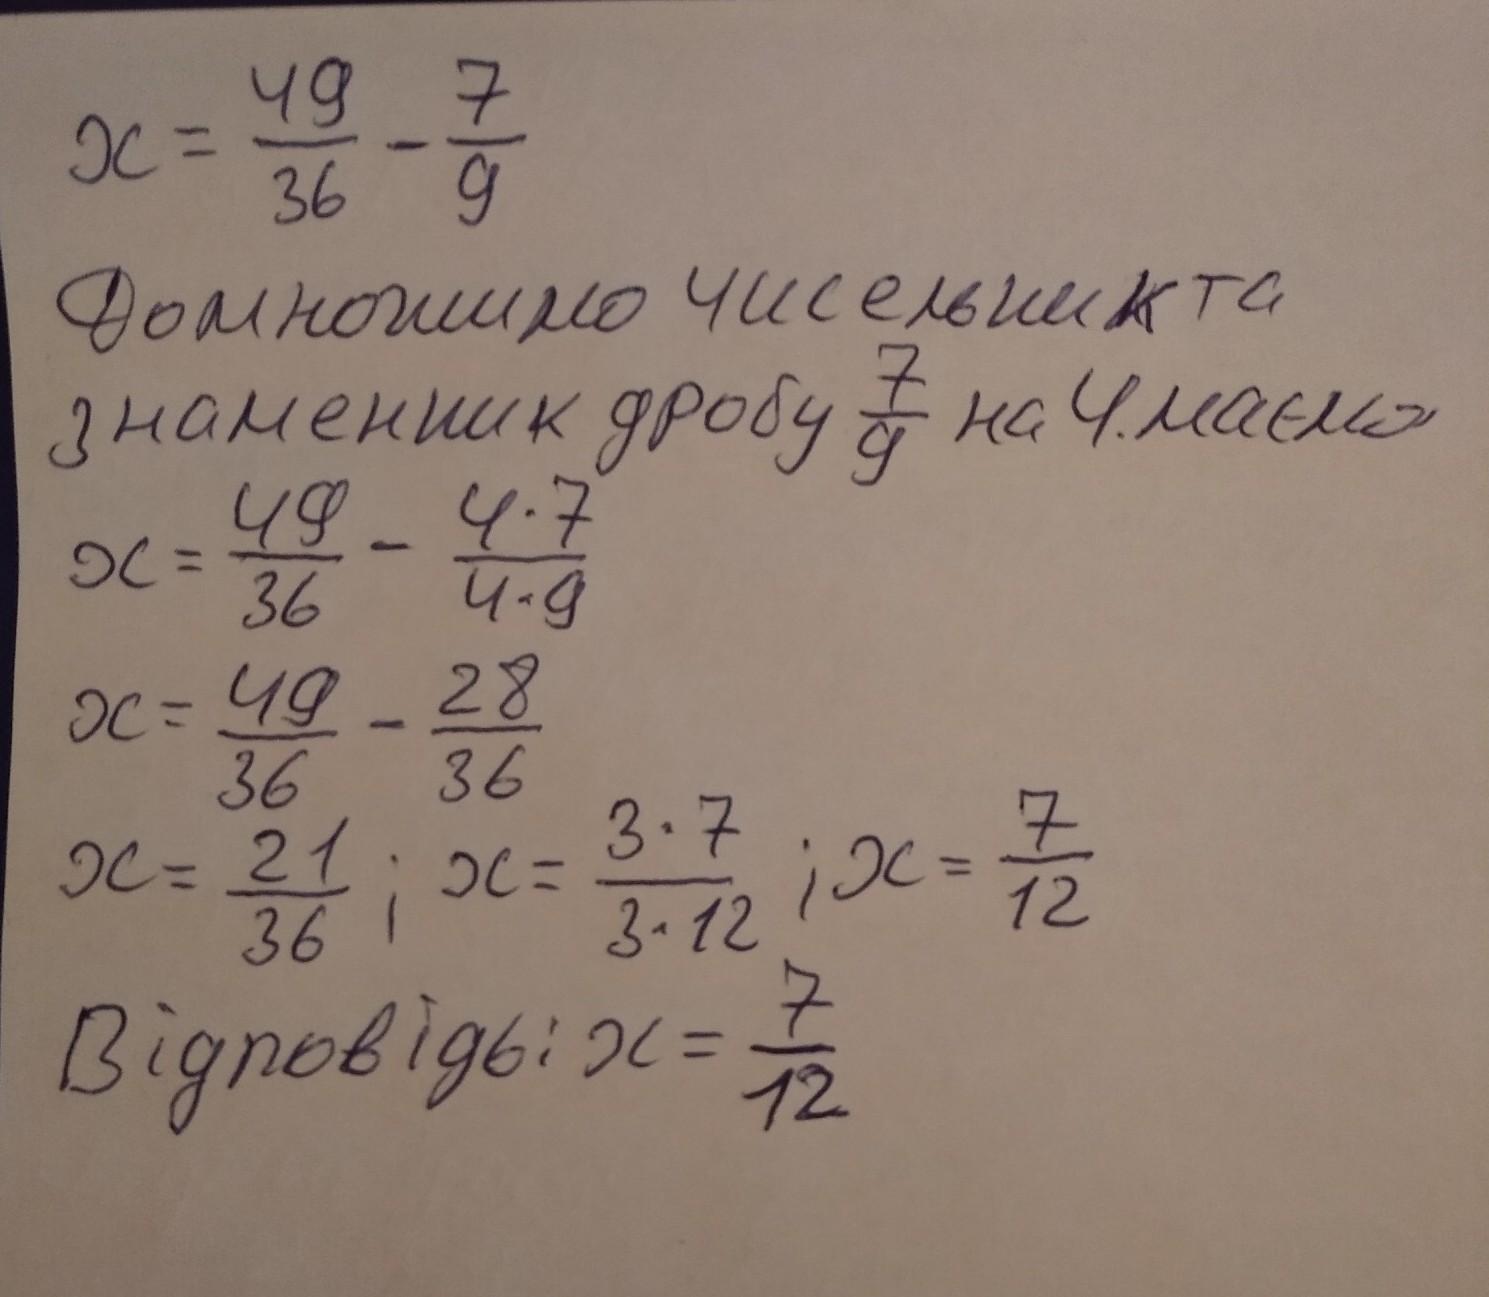 x = 49/36 - 7/9
Домножимо чисельник та
знаменник дробу 7/9 на 4. маємо
x = 49/36 - 4·7/4·9
x = 49/36 - 28/36
x = 21/36 ; x = 3·7/3·12 ; x = 7/12
Відповідь: x = 7/12